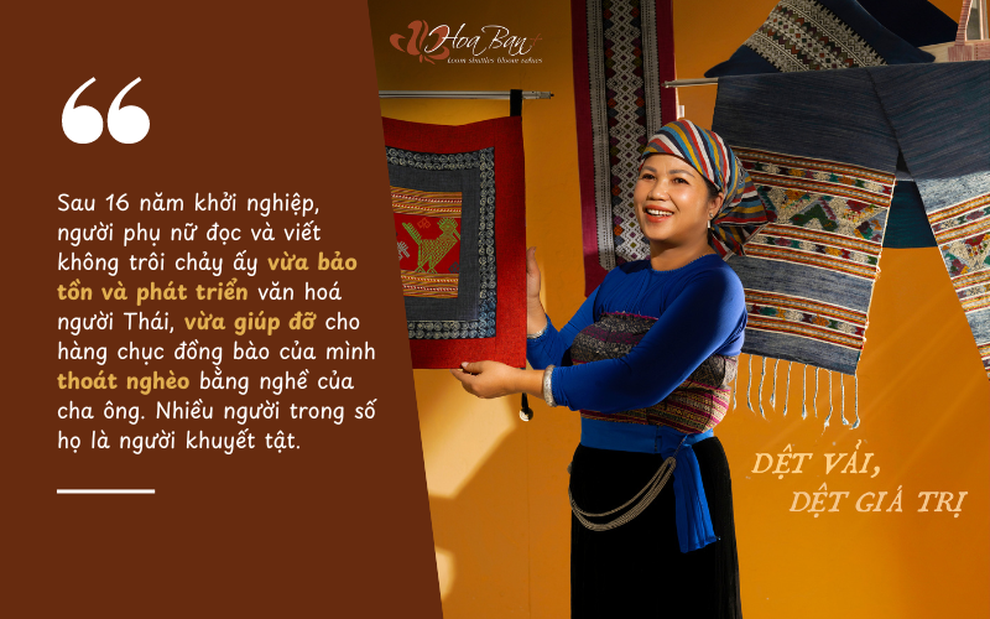 Hoa Ban+
Loom shuttles bloom values
Sau 16 năm khởi nghiệp,
người phụ nữ đọc và viết
không trôi chảy ấy vừa bảo
tồn và phát triển văn hoá
người Thái, vừa giúp đỡ cho
hàng chục đồng bào của mình
thoát nghèo bằng nghề của
cha ông. Nhiều người trong số
họ là người khuyết tật.
DỆT VẢI,
DỆT GIÁ TRỊ